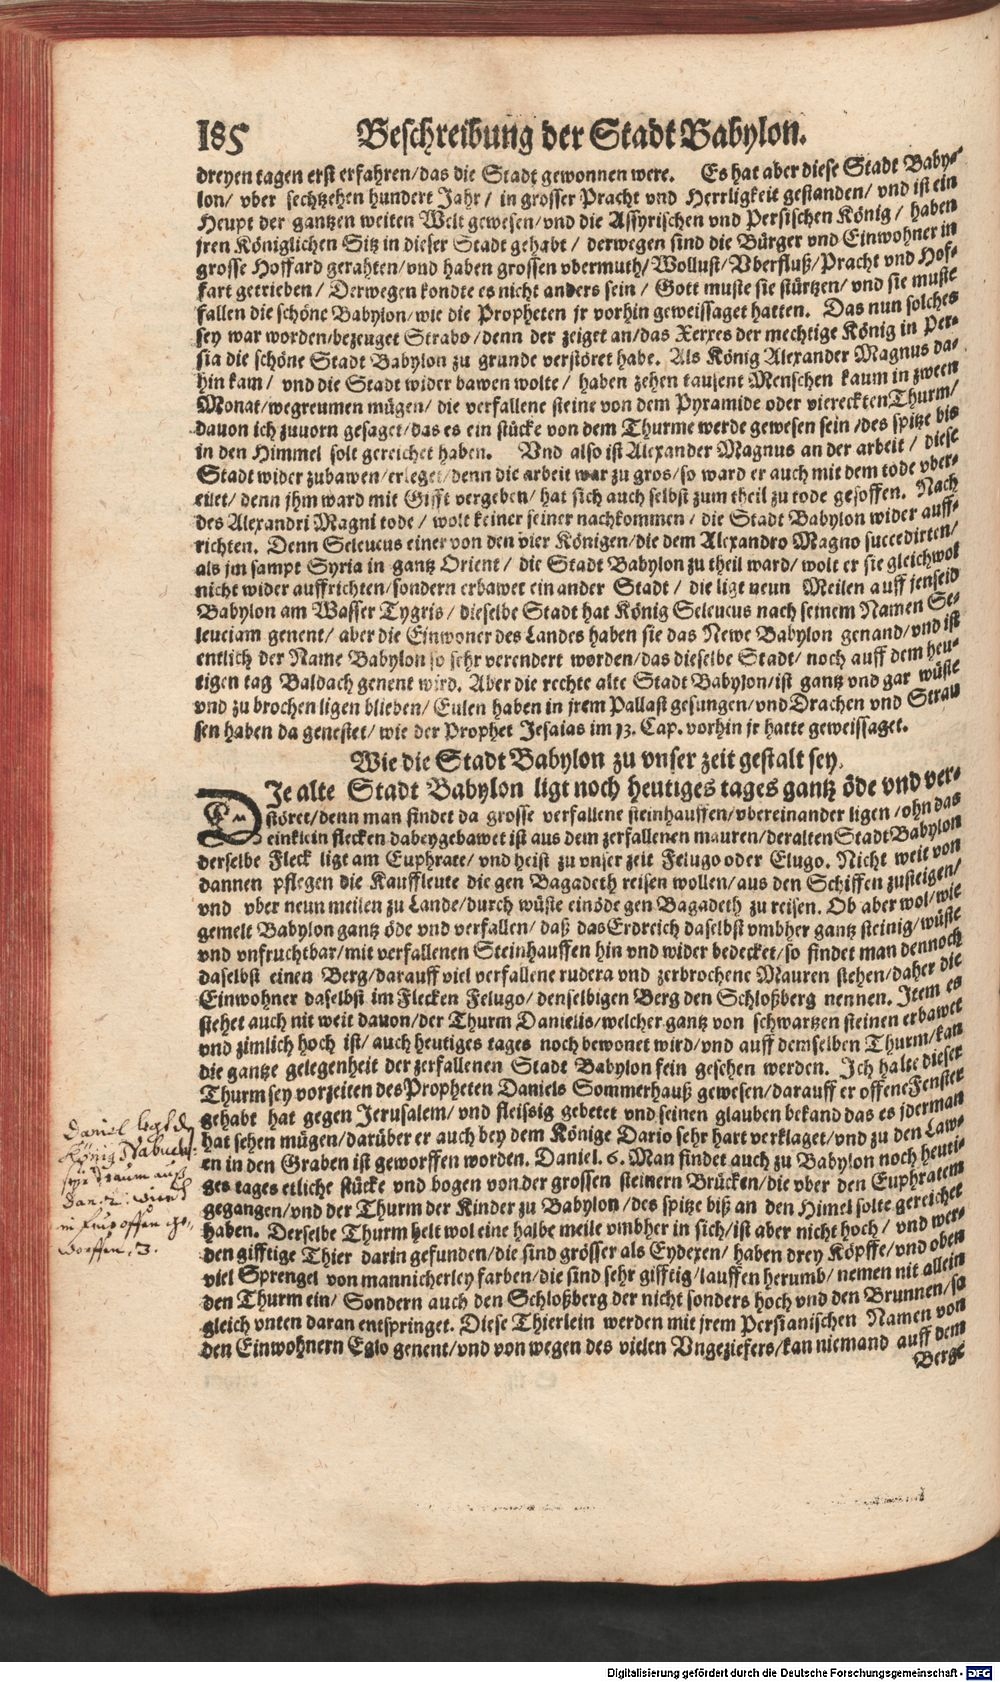 185 Beschreibung der Stadt Babylon.
dreyen tagen erst erfahren/das die Stadt gewonnen were. Es hat aber diese Stadt Baby-
lon/ vber sechtzehen hundert Jahr/ in grosser Pracht vnd Herrligkeit gestanden/ vnd ist ein
Heupt der gantzen weiten Welt gewesen/vnd die Assyrischen vnd Persischen König/ haben
jren Königlichen Sitz in dieser Stadt gehabt/ derwegen sind die Bürger vnd Einwohner in
grosse Hoffard gerahten/vnd haben grossen vbermuth/Wollust/Vberfluß/Pracht vnd Hof-
fart getrieben/ Derwegen kondte es nicht anders sein/ Gott muste sie stürtzen/ vnd sie muste
fallen die schöne Babylon/wie die Propheten jr vorhin geweissaget hatten. Das nun solches
sey war worden/bezeuget Strabo/denn der zeiget an/das Xerxes der mechtige König in Per-
sia die schöne Stadt Babylon zu grunde verstöret habe. Als König Alexander Magnus da-
hin kam/ vnd die Stadt wider bawen wolte/ haben zehen tausent Menschen kaum in zween
Monat/wegreumen mügen/ die verfallene steine von dem Pyramide oder viereckten Thurm/
dauon ich zuuorn gesaget/das es ein stücke von dem Thurme werde gewesen sein/des spitze bis
in den Himmel solt gereichet haben. Vnd also ist Alexander Magnus an der arbeit/ diese
Stadt wider zubawen/erleget/denn die arbeit war zu gros/so ward er auch mit dem tode vber-
eilet/ denn jhm ward mit Gifft vergeben/ hat sich auch selbst zum theil zu tode gesoffen. Nach
des Alexandri Magni tode/ wolt keiner seiner nachkommen/ die Stadt Babylon wider auff-
richten. Denn Seleucus einer von den vier Königen/die dem Alexandro Magno succedirten/
als jm sampt Syria in gantz Orient/ die Stadt Babylon zu theil ward/ wolt er sie gleichwol
nicht wider auffrichten/sondern erbawet ein ander Stadt/ die ligt neun Meilen auff jenseid
Babylon am Wasser Tygris/ dieselbe Stadt hat König Seleucus nach seinem Namen Se-
leuciam genent/ aber die Einwoner des Landes haben sie das Newe Babylon genand/vnd ist
entlich der Name Babylon so sehr verendert worden/das dieselbe Stadt/ noch auff dem heu-
tigen tag Baldach genent wird. Aber die rechte alte Stadt Babylon/ist gantz vnd gar wüste
vnd zu brochen ligen blieben/ Eulen haben in jrem Pallast gesungen/vnd Drachen vnd Strau
sen haben da genestet/ wie der Prophet Jesaias im 13. Cap. vorhin jr hatte geweissaget.
Wie die Stadt Babylon zu vnser zeit gestalt sey.
DIe alte Stadt Babylon ligt noch heutiges tages gantz öde vnd ver-
störet/denn man findet da grosse verfallene steinhauffen/vbereinander ligen/ohn das
ein klein flecken dabey gebawet ist aus dem zerfallenen mauren/der alten Stadt Babylon
derselbe Fleck ligt am Euphrate/ vnd heist zu vnser zeit Felugo oder Elugo. Nicht weit von
dannen pflegen die Kauffleute die gen Bagadeth reisen wollen/aus den Schiffen zusteigen/
vnd vber neun meilen zu Lande/durch wüste einöde gen Bagadeth zu reisen. Ob aber wol/wie
gemelt Babylon gantz öde vnd verfallen/ daß das Erdreich daselbst vmbher gantz steinig/wüste
vnd vnfruchtbar/mit verfallenen Steinhauffen hin vnd wider bedecket/so findet man dennoch
daselbst einen Berg/darauff viel verfallene rudera vnd zerbrochene Mauren stehen/daher die
Einwohner daselbst im Flecken Felugo/denselbigen Berg den Schloßberg nennen. Item es
stehet auch nit weit dauon/der Thurm Danielis/welcher gantz von schwartzen steinen erbawet
vnd zimlich hoch ist/ auch heutiges tages noch bewonet wird/vnd auff demselben Thurm/kan
die gantze gelegenheit der zerfallenen Stadt Babylon fein gesehen werden. Ich halte dieser
Thurm sey vorzeiten des Propheten Daniels Sommerhauß gewesen/darauff er offene Fenster
gehabt hat gegen Jerusalem/ vnd fleissig gebetet vnd seinen glauben bekand das es jderman
hat sehen mügen/darüber er auch bey dem Könige Dario sehr hart verklaget/vnd zu den Law-
en in den Graben ist geworffen worden. Daniel. 6. Man findet auch zu Babylon noch heuti-
ges tages etliche stücke vnd bogen von der grossen steinern Brücken/die vber den Euphratem
gegangen/vnd der Thurm der Kinder zu Babylon/des spitze biß an den Himel solte gereichet
haben. Derselbe Thurm helt wol eine halbe meile vmbher in sich/ist aber nicht hoch/ vnd wer-
den gifftige Thier darin gefunden/die sind grösser als Eydexen/ haben drey Köpffe/vnd oben
viel Sprengel von mannicherley farben/die sind sehr gifftig/lauffen herumb/ nemen nit allein
den Thurm ein/ Sondern auch den Schloßberg der nicht sonders hoch vnd den Brunnen/so
gleich vnten daran entspringet. Diese Thierlein werden mit jrem Persianischen Namen von
den Einwohnern Eglo genent/vnd von wegen des vielen Vngeziefers/kan niemand auff dem
Berge
Daniel legt d
König Nabuch
Traum auß
Dan. 2.
offen ge-
worffen, 3.
Digitalisierung gefördert durch die Deutsche Forschungsgemeinschaft - DFG